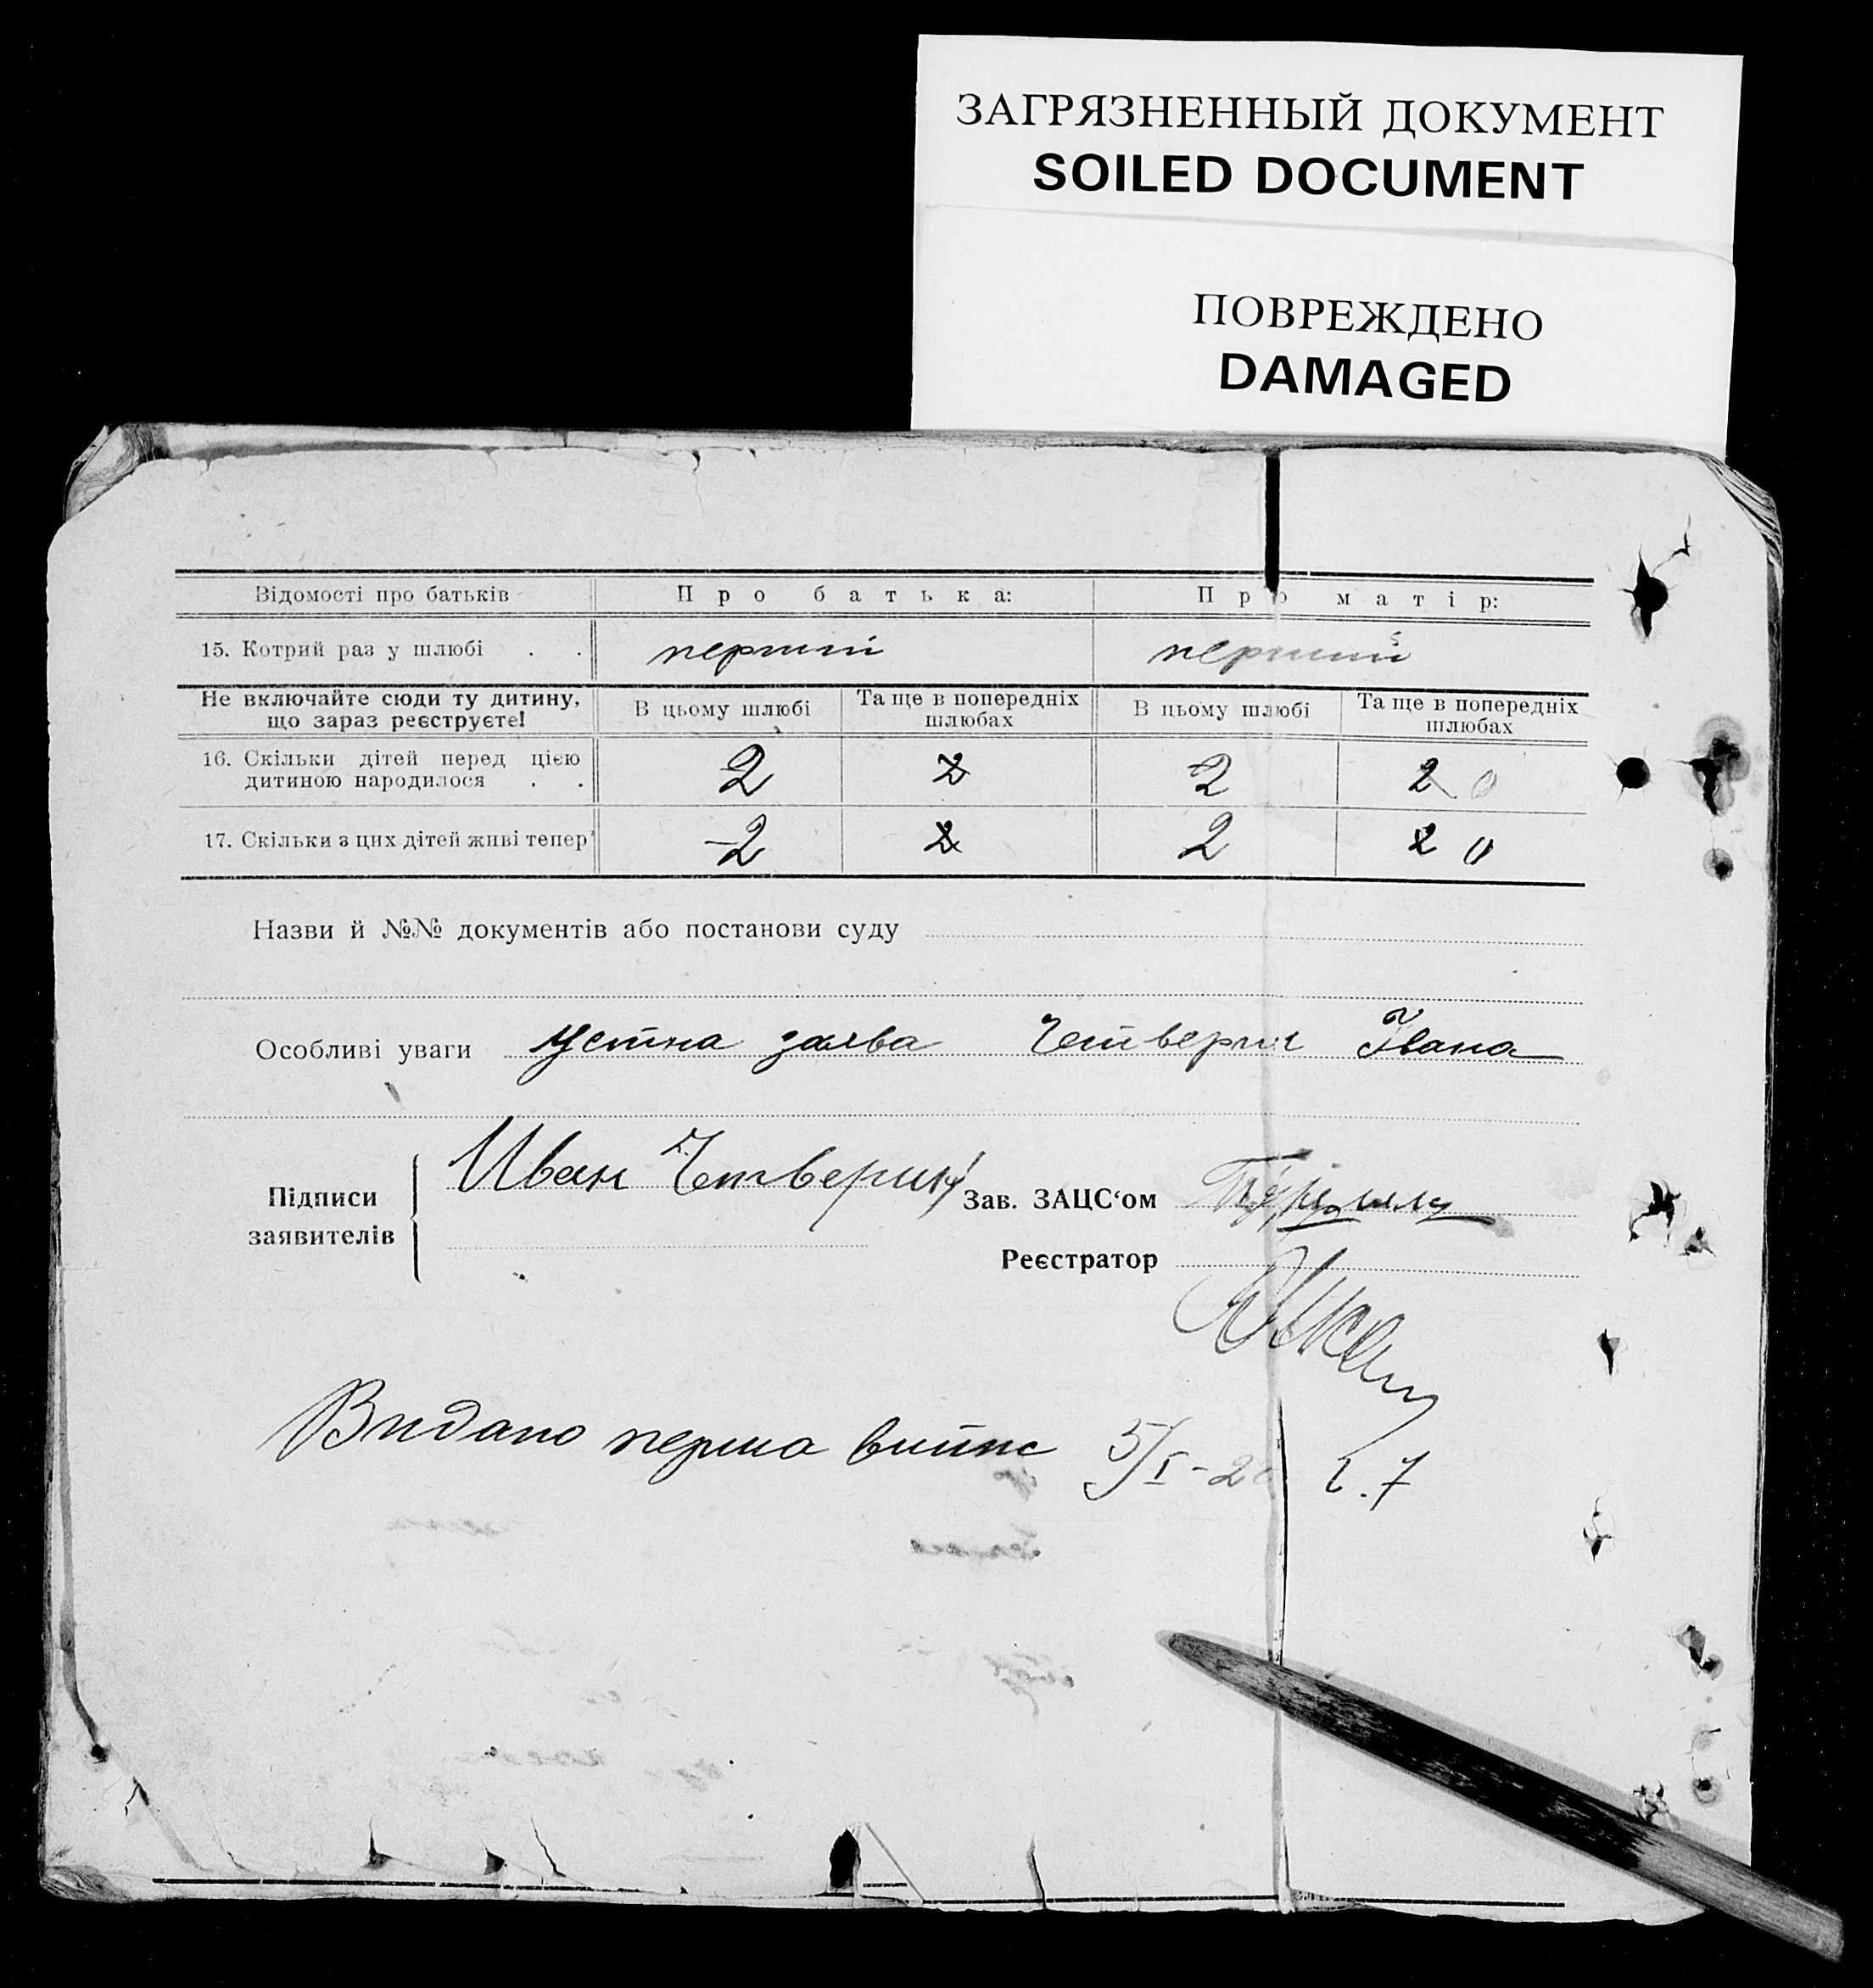 ЗАГРЯЗНЕННЫЙ ДОКУМЕНТ
SOILED DOCUMENT
ПОВРЕЖДЕНО
DAMAGED
Відомості про батьків Про батька: Про матір:
15. Котрий раз у шлюбі . . перший перший
Не включайте сюди ту дитину, що зараз реєструєте! В цьому шлюбі Та ще в попередніх шлюбах В цьому шлюбі Та ще в попередніх шлюбах
16. Скільки дітей перед цією
дитиною народилося . . 2 2 2 2 0
17. Скільки з цих дітей живі тепер 2 2 2 2 0
Назви й №№ документів або постанови суду
Особливі уваги устна заява Четверик Івана
Підписи заявителів Иван Четверик
Зав. ЗАЦС‘ом
Реєстратор
Видано перша випис 5/I-2